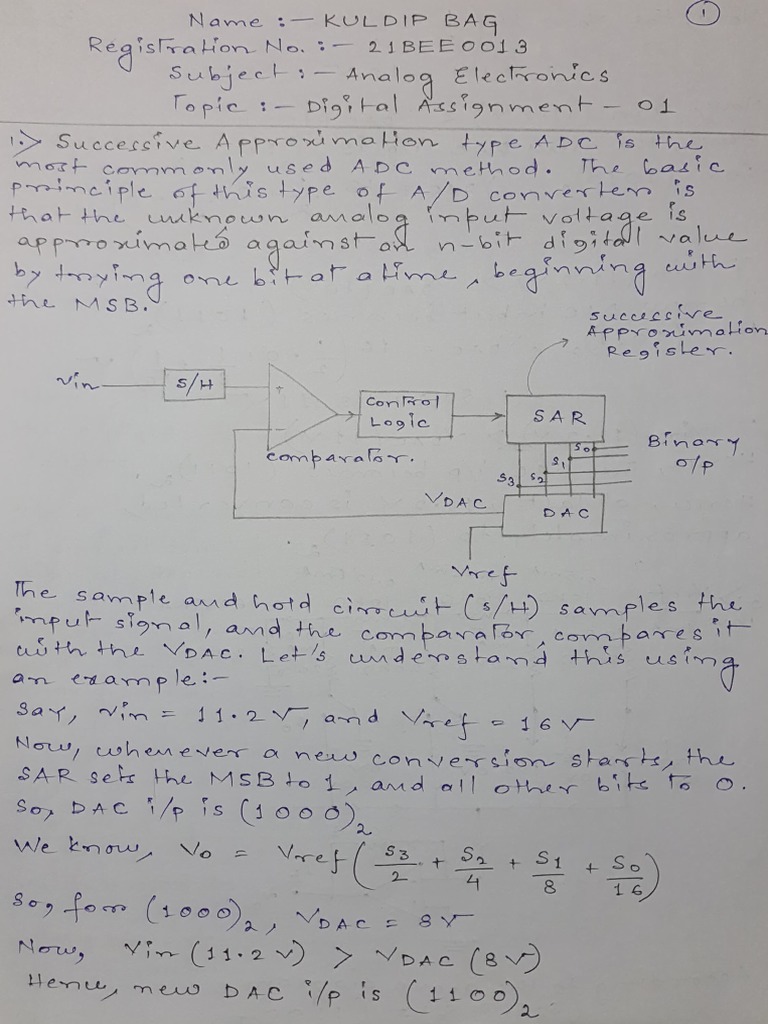 1
Name :- KULDIP BAG
Registration No. :- 21BEE0013
Subject :- Analog Electronics
Topic :- Digital Assignment - 01
1.> Successive Approximation type ADC is the
most commonly used ADC method. The basic
principle of this type of A/D converter is
that the unknown analog input voltage is
approximated against an n-bit digital value
by trying one bit at a time, beginning with
the MSB.
Successive
Approximation
Register.
Vin
S/H
+
-
comparator.
Control
Logic
SAR
S3
S2
S1
S0
Binary
o/p
VDAC
DAC
Vref
The sample and hold circuit (S/H) samples the
input signal, and the comparator, compares it
with the VDAC. Let's understand this using
an example:-
Say, Vin = 11.2 V, and Vref = 16 V
Now, whenever a new conversion starts, the
SAR sets the MSB to 1, and all other bits to 0.
So, DAC i/p is (1000)₂
We know, Vo = Vref (S3/2 + S2/4 + S1/8 + S0/16)
So, for (1000)₂, VDAC = 8 V
Now, Vin (11.2 V) > VDAC (8 V)
Hence, new DAC i/p is (1100)₂